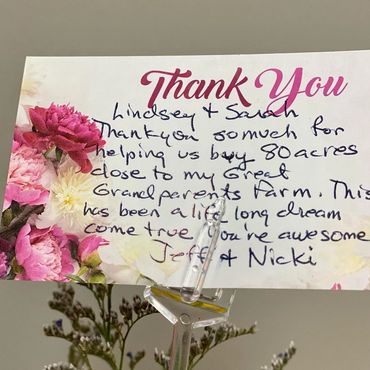 Thank You
Lindsey + Sarah
Thankyou so much for
helping us buy 80 acres
close to my Great
Grandparents Farm. This
has been a life long dream
come true you're awesome
Jeff + Nicki